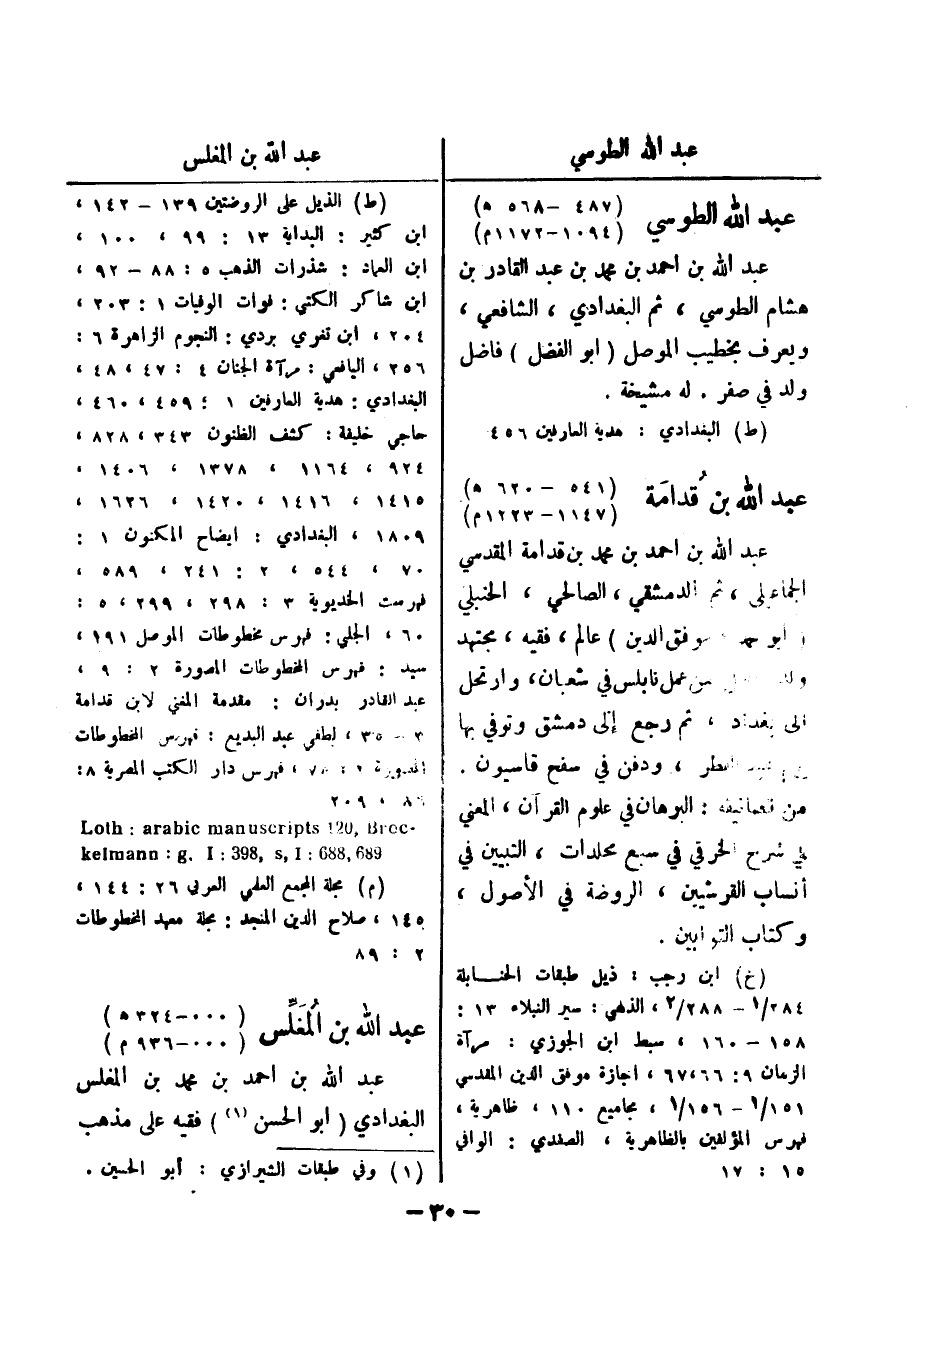 عبد الله الطوسي
عبد الله الطوسي (٤٨٧ – ٥٦٨ ه)
(١٠٩٤–١١٧٢م)
عبد الله بن احمد بن محمد بن عبد القادر بن
هشام الطوسي ، ثم البغدادي ، الشافعي ،
ويعرف بخطيب الموصل ( ابو الفضل ) فاضل
ولد في صفر . له مشيخة .
(ط) البغدادي : هدية العارفين ٤٥٦
عبد الله بن قُدامَة (٥٤١ – ٦٢٠ ه)
(١١٤٧–١٢٢٣م)
عبد الله بن احمد بن محمد بن قدامة المقدسي
الجماعيلي ، ثم الدمشقي ، الصالحي ، الحنبلي
ابو موفق الدين ) عالم ، فقيه ، مجتهد
من عمل نابلس في شعبان، وارتحل
الى بغداد ، ثم رجع إلى دمشق وتوفي بها
الفطر ، ودفن في سفح قاسيون .
من تصانيفه : البرهان في علوم القرآن ، المغني
في شرح الخرقي في سبع مجلدات ، التبيين في
أنساب القرشيين ، الروضة في الأصول ،
وكتاب التوابين .
(خ) ابن رجب : ذيل طبقات الحنابلة
٢٨٤/١ – ٢٨٨/٢ ، الذهبي : سير النبلاء ١٣ :
١٥٨ – ١٦٠ ، سبط ابن الجوزي : مرآة
الزمان ٩: ٦٦،٦٧ ، اجازة موفق الدين المقدسي
١٥١/١ – ١٥٦/١ ، مجاميع ١١٠ ، ظاهرية ،
فهرس المؤلفين بالظاهرية ، الصفدي : الوافي
١٥ : ١٧
عبد الله بن المغلس
(ط) الذيل على الروضتين ١٣٩ – ١٤٢ ،
ابن كثير : البداية ١٣ : ٩٩ ، ١٠٠ ،
ابن العماد : شذرات الذهب ٥ : ٨٨ – ٩٢ ،
ابن شاكر الكتبي : فوات الوفيات ١ : ٢٠٣ ،
٢٠٤ ، ابن تغري بردي : النجوم الزاهرة ٦ :
٢٥٦ ، اليافعي : مرآة الجنان ٤ : ٤٧ ، ٤٨ ،
البغدادي : هدية العارفين ١ : ٤٥٩ ، ٤٦٠ ،
حاجي خليفة : كشف الظنون ٣٤٣ ، ٨٢٨ ،
٩٢٤ ، ١١٦٤ ، ١٣٧٨ ، ١٤٠٦ ،
١٤١٥ ، ١٤١٦ ، ١٤٢٠ ، ١٦٢٦ ،
١٨٠٩ ، البغدادي : ايضاح المكنون ١ :
٧٠ ، ٥٤٤ ، ٢ : ٢٤١ ، ٥٨٩ ،
فهرست الخديوية ٣ : ٢٩٨ ، ٢٩٩ ، ٥ :
٦٠ ، الجلبي : فهرس مخطوطات الموصل ١٩١ ،
سيد : فهرس المخطوطات المصورة ٢ : ٩ ،
عبد القادر بدران : مقدمة المغني لابن قدامة
٣ – ٣٥ ، لطفي عبد البديع : فهرس المخطوطات
المصورة ٢ : ٧٨ ، فهرس دار الكتب المصرية ٨:
، ٢٠٩
Loth : arabic manuscripts 120, Broc-
kelmann : g. I : 398, s, I : 688, 689
(م) مجلة المجمع العلمي العربي ٢٦ : ١٤٤ ،
١٤٥ ، صلاح الدين المنجد : مجلة معهد المخطوطات
٢ : ٨٩
عبد الله بن المُغَلِّس (٠٠٠–٣٢٤ ه)
(٠٠٠–٩٣٦ م)
عبد الله بن احمد بن محمد بن المغلس
البغدادي ( ابو الحسن (١) ) فقيه على مذهب
(١) وفي طبقات الشيرازي : أبو الحسين .
– ٣٠ –